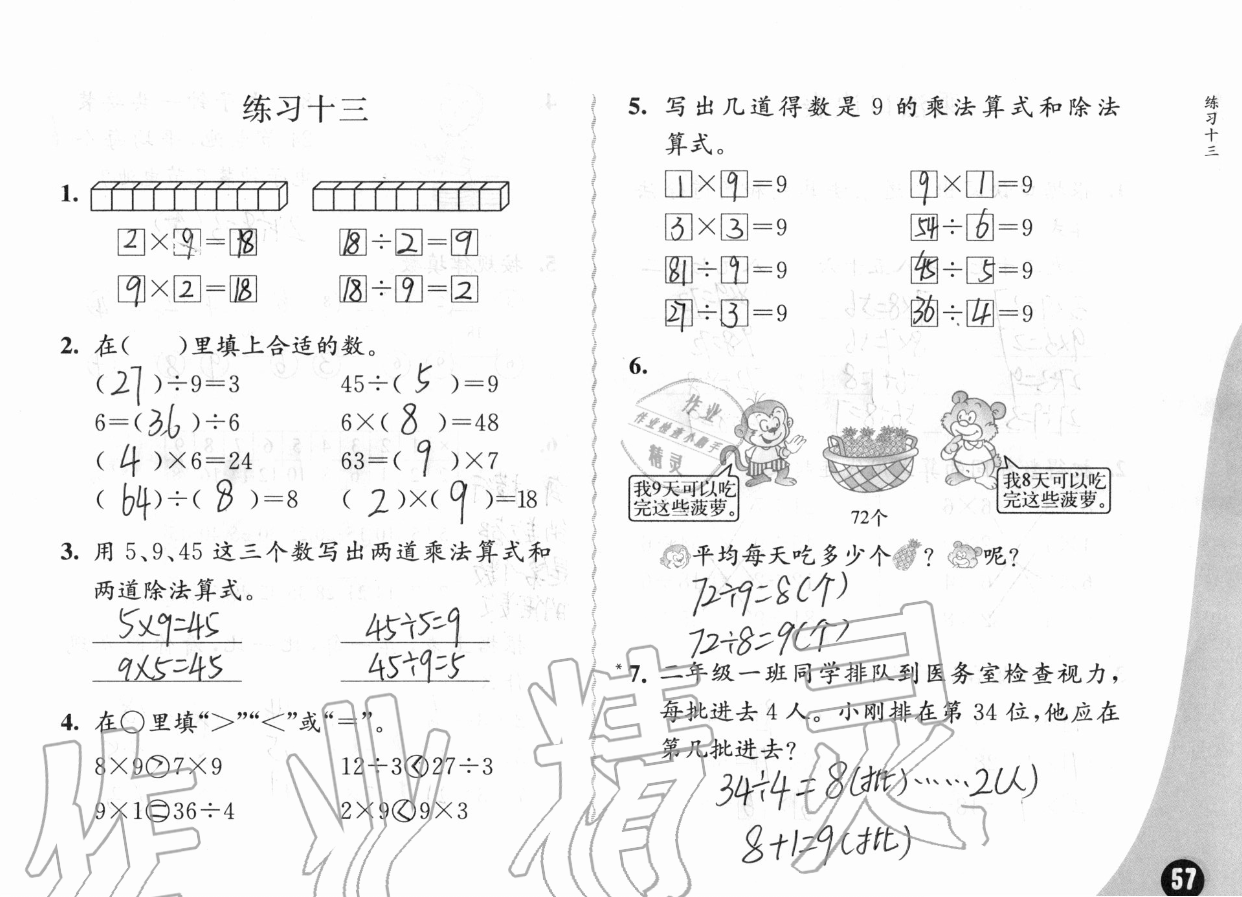 练习十三
1.
2×9=18 18÷2=9
9×2=18 18÷9=2
2. 在( )里填上合适的数。
(27)÷9=3 45÷(5)=9
6=(36)÷6 6×(8)=48
(4)×6=24 63=(9)×7
(64)÷(8)=8 (2)×(9)=18
3. 用 5、9、45 这三个数写出两道乘法算式和
两道除法算式。
5×9=45 45÷5=9
9×5=45 45÷9=5
4. 在○里填“>”“<”或“=”。
8×9>7×9 12÷3<27÷3
9×1=36÷4 2×9<9×3
5. 写出几道得数是 9 的乘法算式和除法
算式。
1×9=9 9×1=9
3×3=9 54÷6=9
81÷9=9 45÷5=9
27÷3=9 36÷4=9
6.
作业
作业检查小助手
精灵
我9天可以吃
完这些菠萝。
72个
我8天可以吃
完这些菠萝。
平均每天吃多少个 ? 呢?
72÷9=8(个)
72÷8=9(个)
*7. 二年级一班同学排队到医务室检查视力,
每批进去 4 人。小刚排在第 34 位,他应在
第几批进去?
34÷4=8(批)……2(人)
8+1=9(批)
练习十三
57
作业精灵